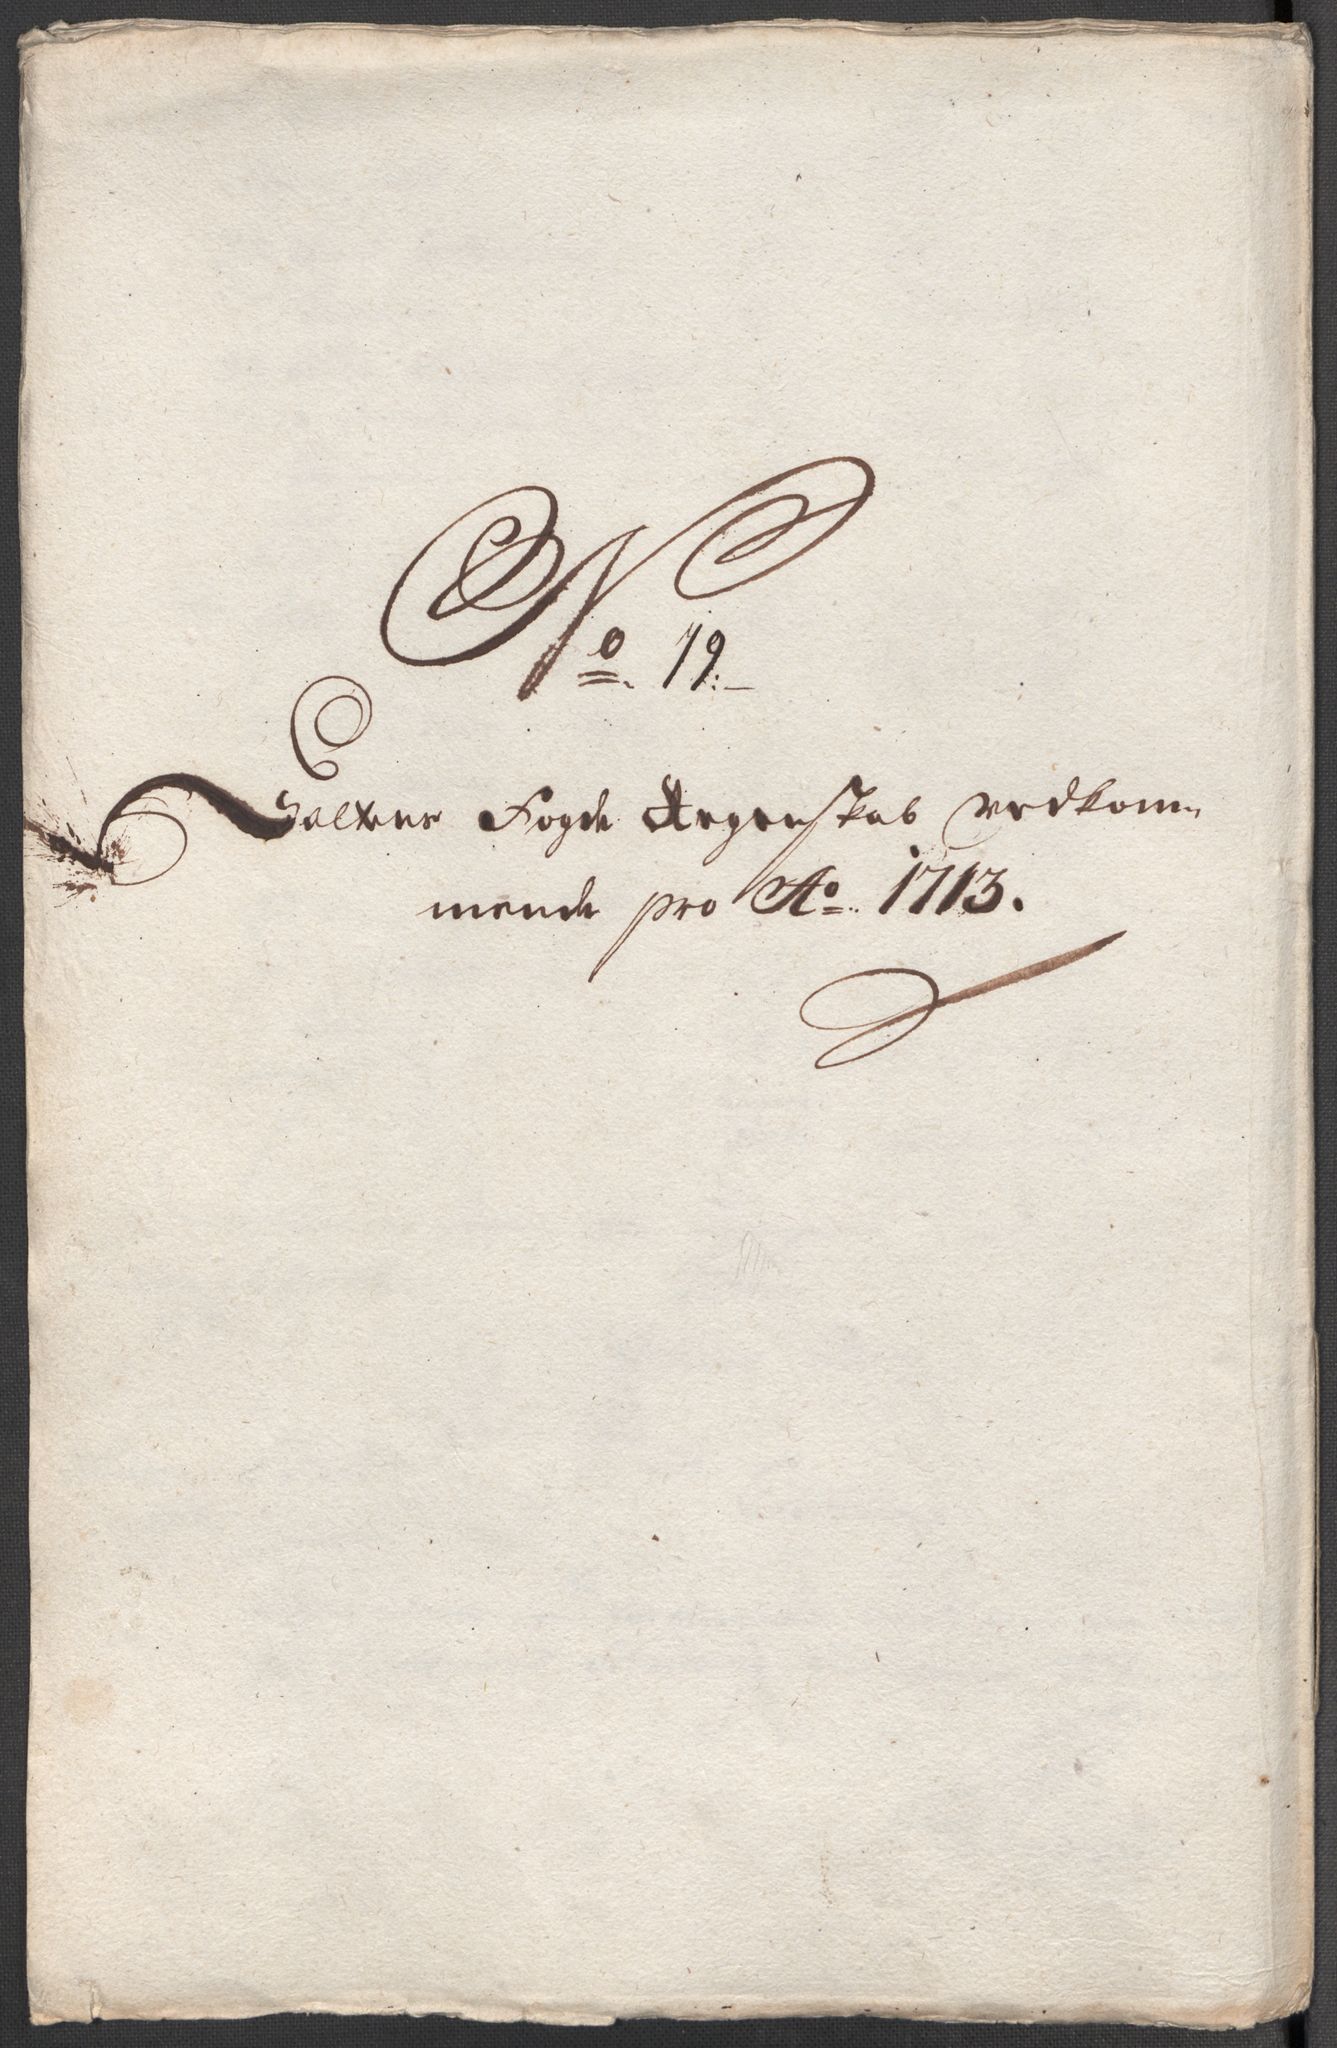 No. 19:
Saltens Fogde Regenskab vedkom-
mende pro Ao. 1713.